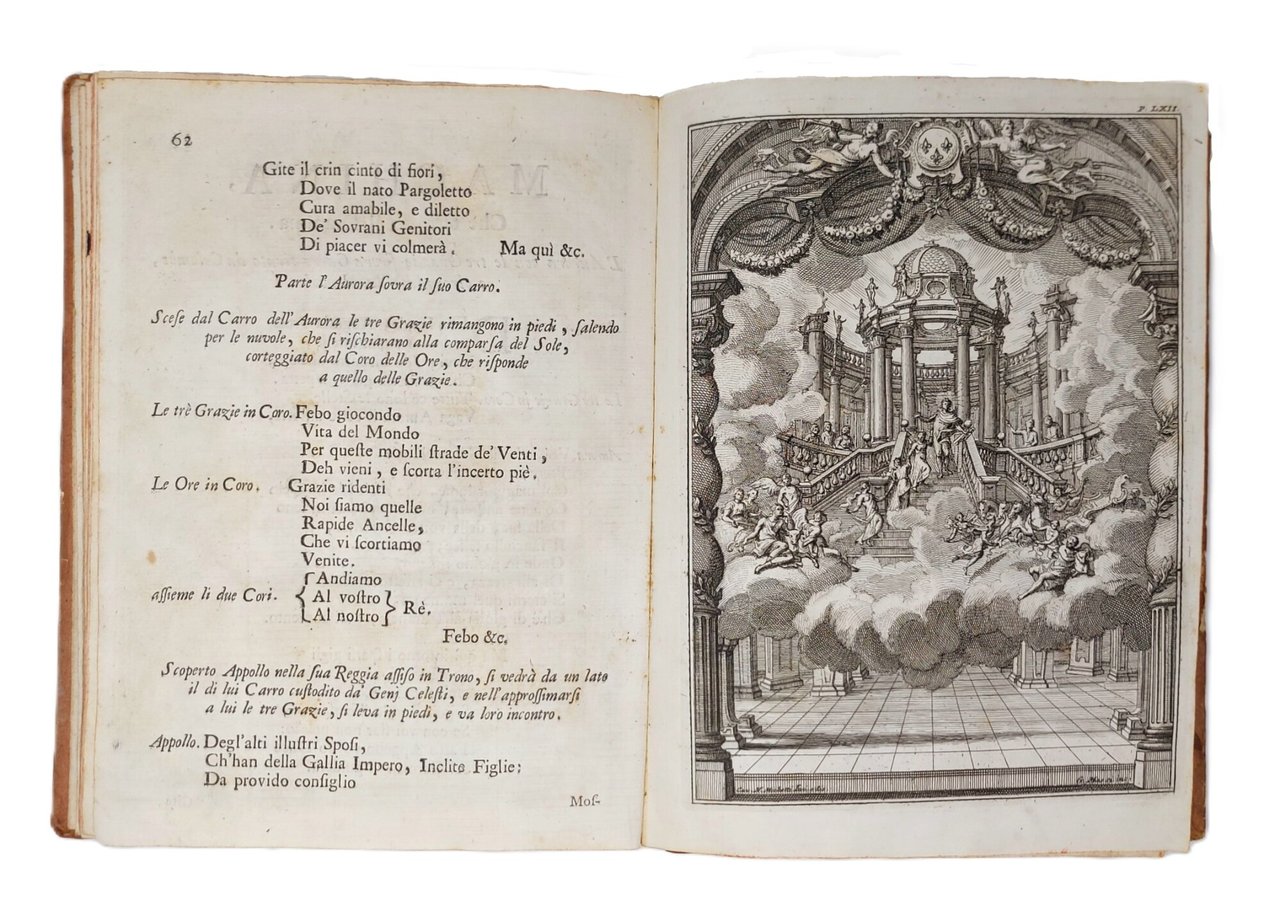 62
Gite il crin cinto di fiori,
Dove il nato Pargoletto
Cura amabile, e diletto
De' Sovrani Genitori
Di piacer vi colmerà. Ma quì &c.
Parte l'Aurora ſovra il ſuo Carro.
Sceſe dal Carro dell'Aurora le tre Grazie rimangono in piedi, ſalendo
per le nuvole, che ſi riſchiarano alla comparſa del Sole,
corteggiato dal Coro delle Ore, che riſponde
a quello delle Grazie.
Le trè Grazie in Coro. Febo giocondo
Vita del Mondo
Per queſte mobili ſtrade de' Venti,
Deh vieni, e ſcorta l'incerto piè.
Le Ore in Coro. Grazie ridenti
Noi ſiamo quelle
Rapide Ancelle,
Che vi ſcortiamo
Venite.
Andiamo
aſſieme li due Cori. { Al voſtro } Rè.
Al noſtro
Febo &c.
Scoperto Appollo nella ſua Reggia aſſiſo in Trono, ſi vedrà da un lato
il di lui Carro cuſtodito da' Genj Celeſti, e nell'approſſimarſi
a lui le tre Grazie, ſi leva in piedi, e va loro incontro.
Appollo. Degl'alti illuſtri Spoſi,
Ch'han della Gallia Impero, Inclite Figlie;
Da provido conſiglio
Moſ-
P. LXII